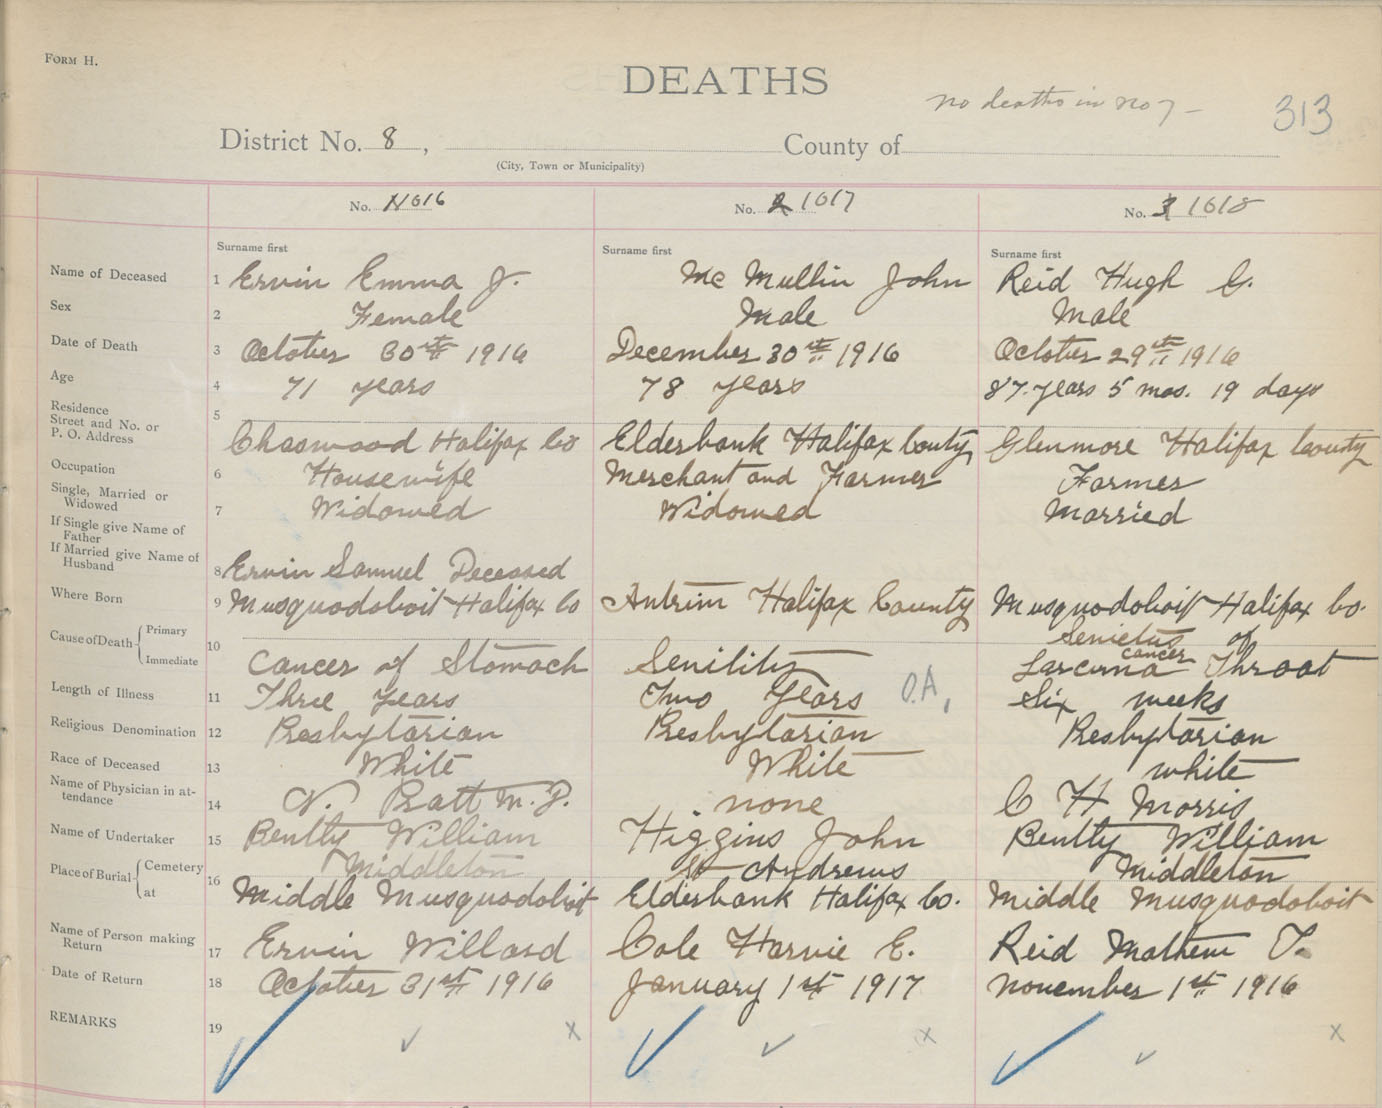 FORM H.
DEATHS
no deaths in no 7 -
313
District No. 8 , County of
(City, Town or Municipality)
No. 1616 No. 2 1617 No. 3 1618
Surname first Surname first Surname first
Name of Deceased 1 Ervin Emma J. Mc Mullin John Reid Hugh G.
Sex 2 Female Male Male
Date of Death 3 October 30th 1916 December 30th 1916 October 29th 1916
Age 4 71 years 78 years 87 years 5 mos. 19 days
Residence
Street and No. or
P. O. Address 5 Chaswood Halifax Co Elderbank Halifax County Glenmore Halifax County
Occupation 6 Housewife Merchant and Farmer Farmer
Single, Married or
Widowed 7 Widowed Widowed Married
If Single give Name of
Father
If Married give Name of
Husband 8 Ervin Samuel Deceased
Where Born 9 Musquodoboit Halifax Co Antrim Halifax County Musquodoboit Halifax Co.
Cause of Death Primary Senectus of
cancer
Immediate 10 Cancer of Stomach Senility Throat
Length of Illness 11 Three years Two years O.A, Six weeks
Religious Denomination 12 Presbytarian Presbytarian Presbytarian
Race of Deceased 13 White White white
Name of Physician in at-
tendance 14 Pratt M.D. none C H Morris
Name of Undertaker 15 Bently William Higgins John Bently William
Place of Burial Cemetery 16 Middleton St Andrews Middleton
at Middle Musquodoboit Elderbank Halifax Co. Middle Musquodoboit
Name of Person making
Return 17 Ervin Willard Cole Harvie E. Reid Mathew T.
Date of Return 18 October 31st 1916 January 1st 1917 November 1st 1916
REMARKS 19